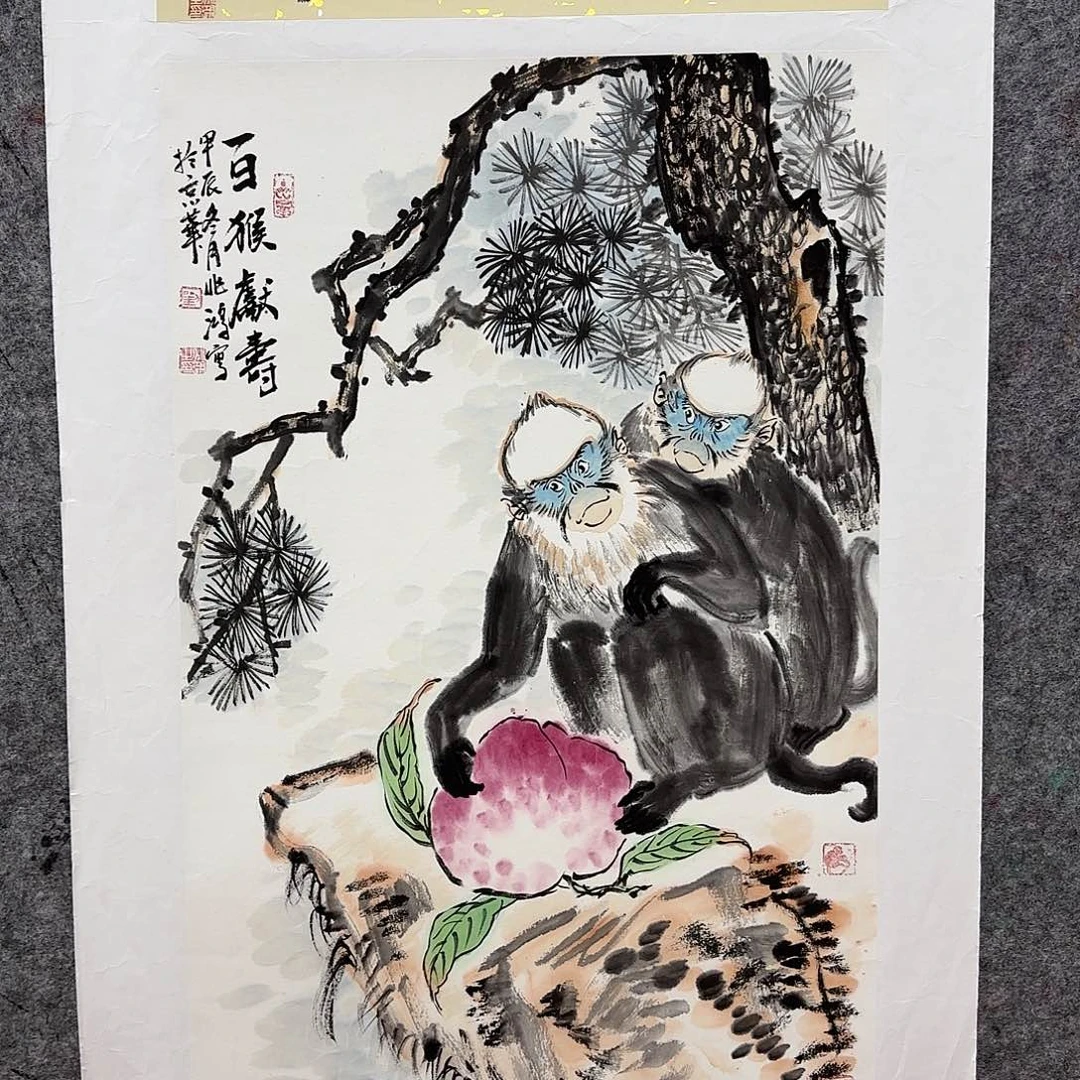 百猴獻壽
甲辰冬月兆鴻寫
於京華